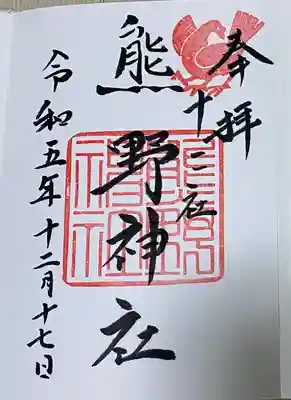 奉拝
十二社
熊野神社
令和五年十二月十七日